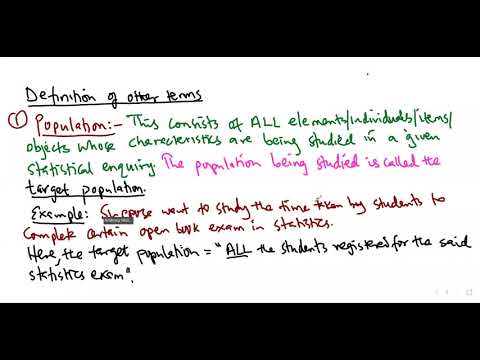 Definition of other terms
① Population:- This consists of ALL elements/individuals/items/
objects whose characteristics are being studied in a given
statistical enquiry. The population being studied is called the
target population.
Example: Suppose want to study the time taken by students to
complete certain open book exam in statistics.
Here, the target population = "ALL the students registered for the said
statistics exam".